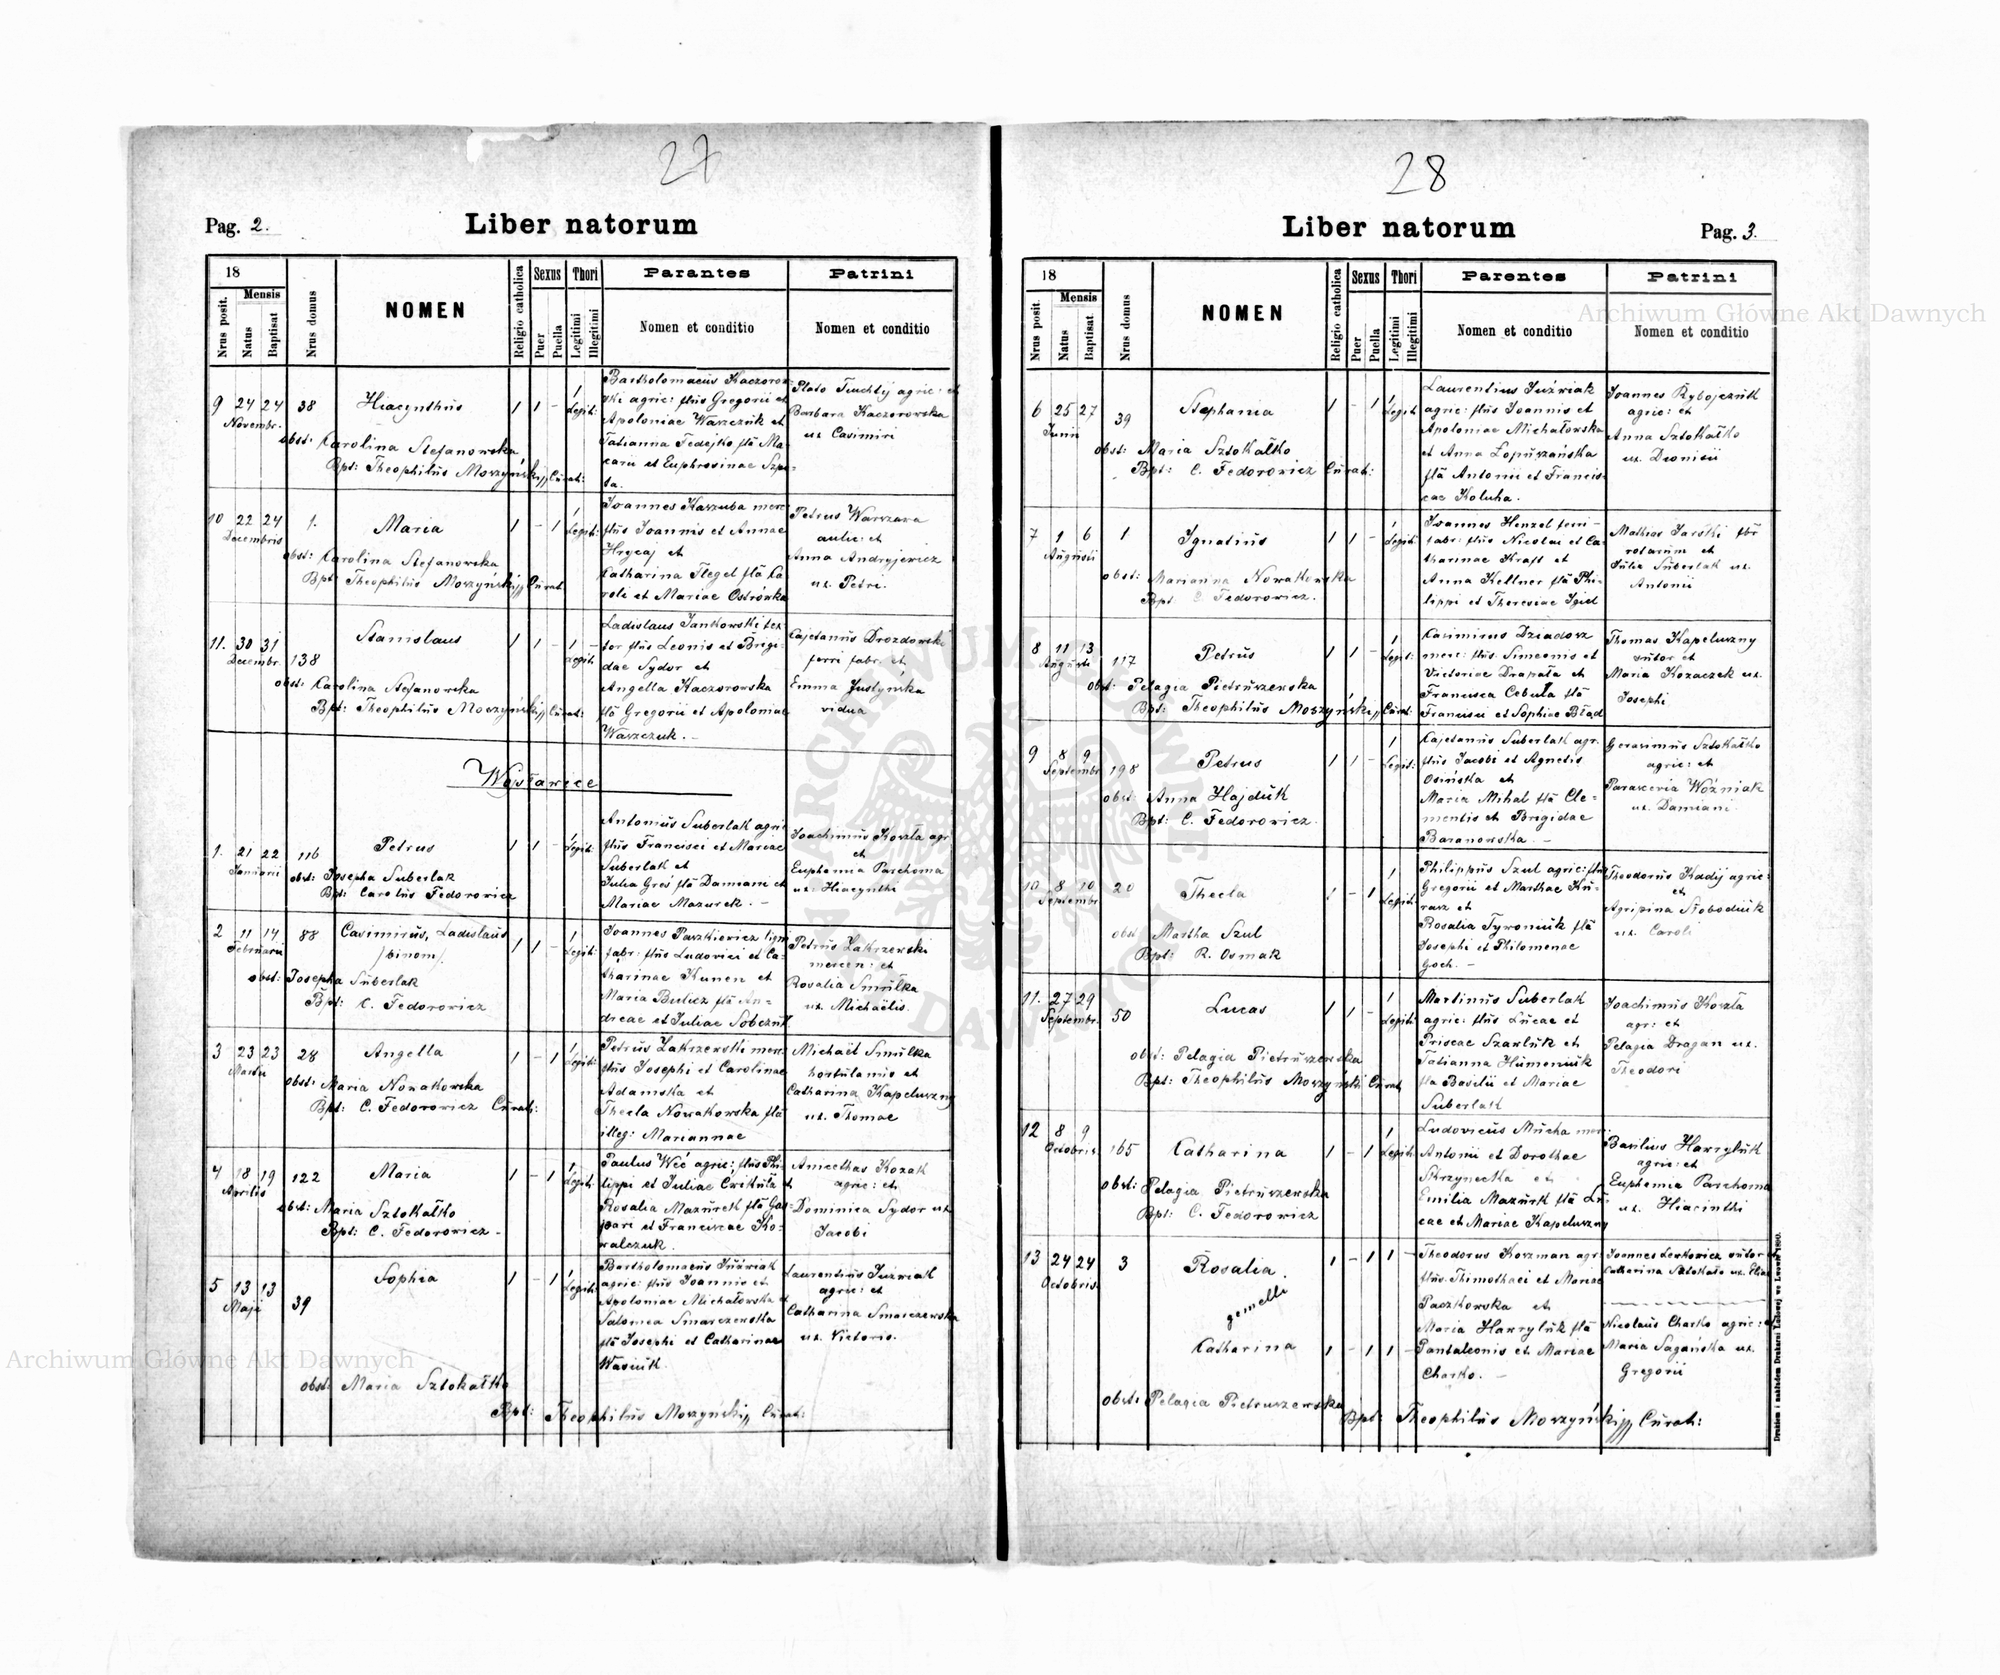 27
Pag. 2.
Liber natorum
18
Mensis
Nrus posit.
Natus
Baptisat
Nrus domus
NOMEN
Religio catholica
Sexus
Puer
Puella
Thori
Legitimi
Illegitimi
Parantes
Nomen et conditio
Patrini
Nomen et conditio
9 24 24 38 Hiacynthus 1 1 - 1
Novembr. Legit:
obst: Carolina Stefanowska
Bpt: Theophilus Moszyński, Curat:
Bartholomaeus Kaczorow-
ski agric: flius Gregorii et
Apoloniae Waszczuk et
Tatianna Fedejko flia Ma-
carii et Euphrosinae Szpu-
ta.
Plato Tuchtij agric: et
Barbara Kaczorowska
ux Casimiri
10 22 24 1. Maria 1 - 1 1
Decembris Legit:
obst: Carolina Stefanowska
Bpt: Theophilus Moszyński, Curat
Joannes Kaszuba merc
flius Joannis et Annae
Hrycaj et
Catharina Flegel flia Ca
roli et Mariae Ostrówka
Petrus Warzara
aulic: et
Anna Andryjewicz
ux. Petri.
11. 30 31 138 Stanislaus 1 1 - 1 -
Decembr. Legit.
obst: Carolina Stefanowska
Bpt: Theophilus Moszyński, Curat:
Ladislaus Jankowski tex-
tor flius Leonis et Brigi-
dae Sydor et
Angella Kaczorowska
flia Gregorii et Apoloniae
Waszczuk. -
Cajetanus Drozdowski
ferri fabr. et
Emma Justyńska
vidua
Wojsławice
1. 21 22 116 Petrus 1 1 - 1
Januarii Legit:
obst: Josepha Suberlak
Bpt: Carolus Fedorowicz
Antonius Suberlak agric
flius Francisci et Mariae
Suberlak et
Julia Greś flia Damiani et
Mariae Mazurek. -
Joachimus Koszla agr
et
Euphemia Parchoma
ux: Hiacynthi
2 11 14 88 Casimirus, Ladislaus 1 1 - 1
Februarii /binom/. Legit:
obst: Josepha Suberlak
Bpt: C. Fedorowicz
Joannes Paszkiewicz lign
fabr: flius Ludovici et Ca-
tharinae Kunen et
Maria Bulicz flia An-
dreae et Juliae Sobczuk.
Petrus Zakrzewski
mercen: et
Rosalia Smulka
ux. Michaëlis.
3 23 23 28 Angella 1 - 1 1
Martii Legit:
obst: Maria Nowakowska
Bpt: C. Fedorowicz Curat:
Petrus Zakrzewski merc
flius Josephi et Carolinae
Adamska et
Thecla Nowakowska flia
illeg: Mariannae
Michaël Smulka
hortulanis et
Catharina Kapeluszny
ux. Thomae
4 18 19 122 Maria 1 - 1 1
Aprilis Legit:
obst: Maria Sztokałko
Bpt: C. Fedorowicz -
Paulus Weć agric; flius Phi-
lippi et Juliae Cwikuła et
Rosalia Mazurek flia Gas-
pari et Franciscae Ko-
walczuk.
Anicethas Kozak
agric: et
Dominica Sydor ux
Jacobi
5 13 13 39 Sophia 1 - 1 1
Maji Legit:
obst: Maria Sztokałko
Bpt: Theophilus Moszyński, Curat:
Bartholomaeus Juźwiak
agric: flius Joannis et
Apoloniae Michałowska et
Salomea Smarczewska
flia Josephi et Catharinae
Wasiuk.
Laurentius Juźwiak
agric: et
Catharina Smarczewska
ux. Victoris.
28
Liber natorum
Pag. 3.
18
Mensis
Nrus posit.
Natus
Baptisat
Nrus domus
NOMEN
Religio catholica
Sexus
Puer
Puella
Thori
Legitimi
Illegitimi
Parentes
Nomen et conditio
Patrini
Nomen et conditio
6 25 27 39 Stephania 1 - 1 1
Junii Legit:
obst: Maria Sztokałko
Bpt: C. Fedorowicz Curat:
Laurentius Juźwiak
agric: flius Joannis et
Apoloniae Michałowska
et Anna Łopuszańska
flia Antonii et Francis-
cae Koluha.
Joannes Rybojczuk
agric: et
Anna Sztokałko
ux. Dionisii
7 1 6 1 Ignatius 1 1 - 1
Augusti Legit:
obst: Marianna Nowakowska
Bpt C. Fedorowicz.
Joannes Henzel ferri-
fabr: flius Nicolai et Ca-
tharinae Kraft et
Anna Kellner flia Phi-
lippi et Theresiae Igiel
Mathias Jarski fbr
rotarum et
Julia Suberlak ux.
Antonii
8 11 13 117 Petrus 1 1 - 1
Augusti Legit:
obst: Pelagia Pietruszewska
Bpt: Theophilus Moszyński, Curat:
Casimirus Dziadosz
merc: flius Simeonis et
Victoriae Drapała et
Francisca Cebula flia
Francisci et Sophiae Błąd
Thomas Kapeluszny
sutor et
Maria Kozaczek ux.
Josephi
9 8 9 198 Petrus 1 1 - 1
Septembr Legit:
obst: Anna Hajduk
Bpt: C. Fedorowicz.
Cajetanus Suberlak agr.
flius Jacobi et Agnetis
Osińska et
Maria Mihal flia Cle-
mentis et Brigidae
Baranowska. -
Gerasimus Sztokałko
agric: et
Parasceria Woźniak
ux. Damiani
10 8 10 20 Thecla 1 - 1 1
Septembr Legit:
obst: Martha Szul
Bpt: R. Osmak
Philippus Szul agric: flius
Gregorii et Marthae Ku-
rasz et
Rosalia Tyroniuk flia
Josephi et Philomenae
Goch. -
Theodorus Kadij agric:
et
Agripina Słobodiuk
ux. Caroli
11. 27 29 50 Lucas 1 1 - 1
Septembr. Legit:
obst: Pelagia Pietruszewska
Bpt: Theophilus Moszyński Curat
Martinus Suberlak
agric: flius Lucae et
Priscae Szawluk et
Tatianna Humeniuk
flia Basilii et Mariae
Suberlak
Joachimus Koszla
agr: et
Pelagia Dragan ux.
Theodori
12 8 9 165 Catharina 1 - 1 1
Octobris Legit:
obst: Pelagia Pietruszewska
Bpt: C. Fedorowicz
Ludovicus Mucha merc:
Antonii et Dorothae
Skrzynecka et
Emilia Mazurk flia Lu-
cae et Mariae Kapeluszny
Basilius Hawryluk
agric: et
Euphemia Parchoma
ux. Hiacinthi
13 24 24 3 Rosalia. 1 - 1 1 -
Octobris
gemelli
Catharina 1 - 1 1 -
obst: Pelagia Pietruszewska
Bpt: Theophilus Moszyński, Curat:
Theodorus Koszman agr:
flius. Thimothaei et Mariae
Paczkowska et
Maria Hawryluk flia
Pantaleonis et Mariae
Charko. -
Joannes Lewkowicz sutor et
Catharina Sztokało ux. Eliae
Nicolaus Charko agric: et
Maria Sagańska ux.
Gregorii
Drukiem i nakładem Drukarni Ludowej we Lwowie 1890.
Archiwum Główne Akt Dawnych
Archiwum Główne Akt Dawnych
ARCHIWUM GŁÓWNE AKT DAWNYCH